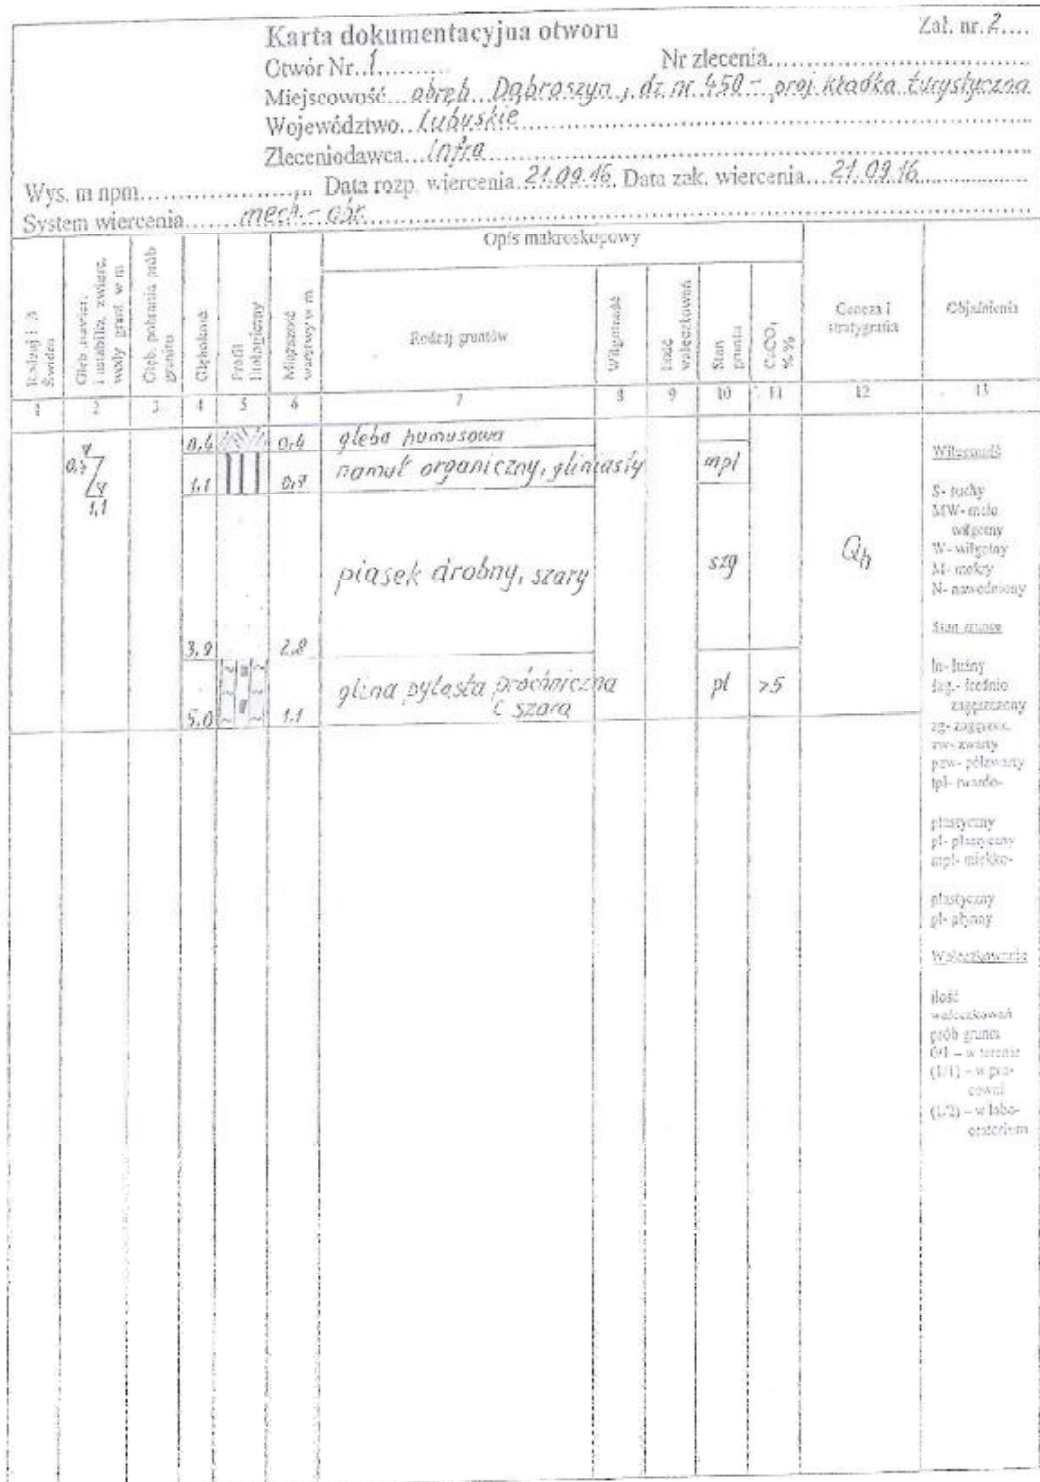 Karta dokumentacyjna otworu
Zał. nr. 2....
Otwór Nr..1..........
Nr zlecenia...............................
Miejscowość...obręb Dąbroszyn, dz. nr 450 - proj. kładka turystyczna
Województwo..Lubuskie
Zleceniodawca...Infra
Wys. m npm.................. Data rozp. wiercenia. 21.09.16. Data zak. wiercenia....21.09.16
System wiercenia.......mech - obr.
Opis makroskopowy
Głębokość
Profil litologiczny
Miąższość warstwy w m
Rodzaj gruntów
Wilgotność
Ilość wałeczkowań
Stan gruntu
CaCO₃ %%
Geneza i stratygrafia
Objaśnienia
Głęb. pobrania prób gruntu
1 2 3 4 5 6 7 8 9 10 11 12 13
0,4 0,4 gleba humusowa
1,1 namuł organiczny, gliniasty mpl
1,1
piasek drobny, szary szg Qh
3,9 2,8
glina pylasta próchniczna pl >5
szara
5,0 1.1
Wilgotność
S- suchy
MW- mało
wilgotny
W- wilgotny
M- mokry
N- nawodniony
Stan gruntu
ln- luźny
szg.- średnio
zagęszczony
zg- zagęszcz.
zw- zwarty
pzw- półzwarty
tpl- twardo-
plastyczny
pl- plastyczny
mpl- miękko-
plastyczny
pł- płynny
Wałeczkowanie
ilość
wałeczkowań
prób gruntu
0/1 – w terenie
(1/1) – w pra-
cowni
(1/2) – w labo-
ratorium